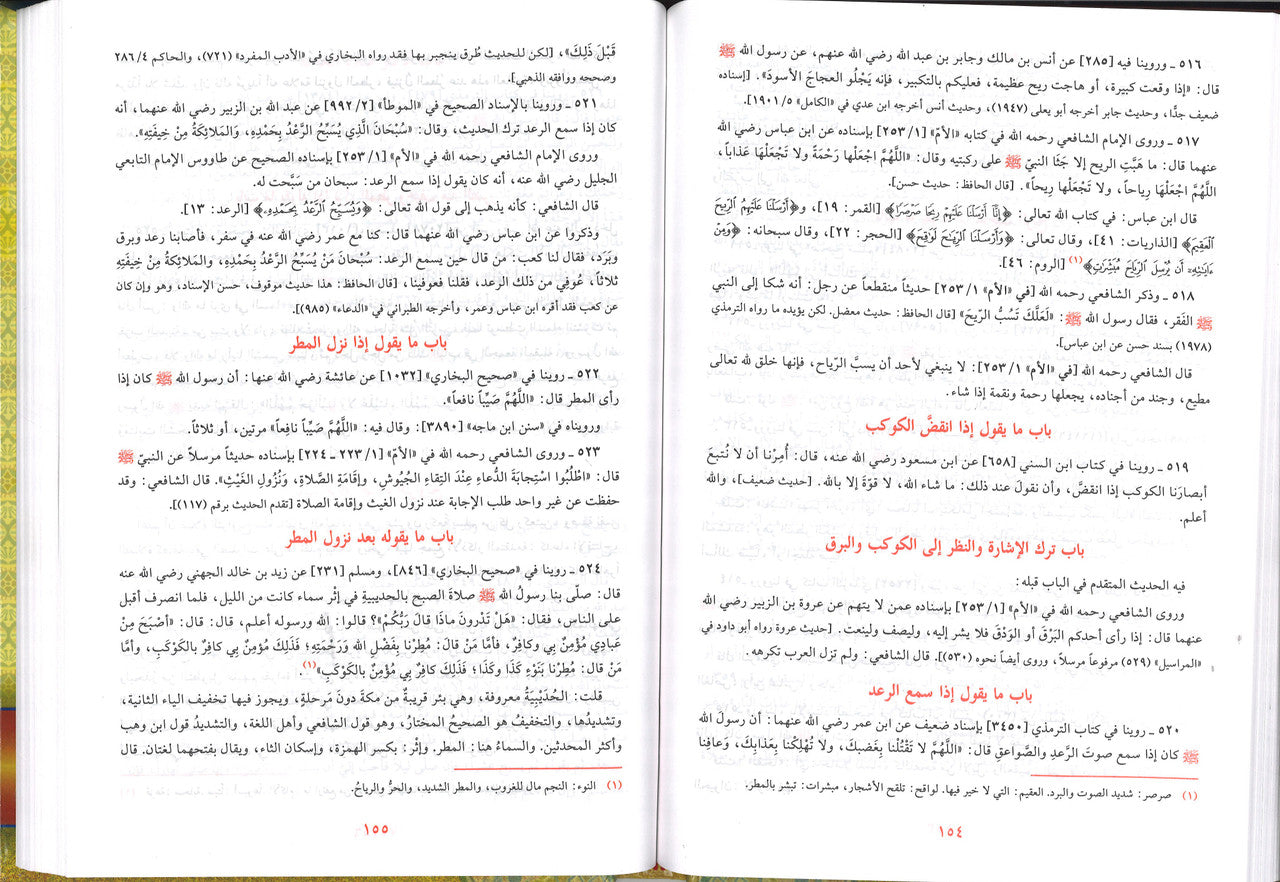 ٥١٦ ـ وروينا فيه [٢٨٥] عن أنس بن مالك وجابر بن عبد الله رضي الله عنهم، عن رسول الله ﷺ
قال: «إذا وقعت كبيرة، أو هاجت ريح عظيمة، فعليكم بالتكبير، فإنه يَجْلُو العجاجَ الأسودَ». [إسناده
ضعيف جدًّا، وحديث جابر أخرجه أبو يعلى (١٩٤٧)، وحديث أنس أخرجه ابن عدي في «الكامل» ١٩٠١/٥].
٥١٧ ـ وروى الإمام الشافعي رحمه الله في كتابه «الأمّ» [٢٥٣/١] بإسناده عن ابن عباس رضي الله
عنهما قال: ما هَبَّتِ الريح إلا جَثَا النبيّ ﷺ على ركبتيه وقال: «اللَّهُمَّ اجْعَلْها رَحْمَةً ولا تَجْعَلْهَا عَذاباً،
اللَّهُمَّ اجْعَلْهَا رِياحاً، ولا تَجْعَلْها رِيحاً». [قال الحافظ: حديث حسن].
قال ابن عباس: في كتاب الله تعالى: ﴿إِنَّا أَرْسَلْنَا عَلَيْهِمْ رِيحًا صَرْصَرًا﴾ [القمر: ١٩]، و﴿أَرْسَلْنَا عَلَيْهِمُ ٱلرِّيحَ
ٱلْعَقِيمَ﴾ [الذاريات: ٤١]، وقال تعالى: ﴿وَأَرْسَلْنَا ٱلرِّيَٰحَ لَوَٰقِحَ﴾ [الحجر: ٢٢]، وقال سبحانه: ﴿وَمِنْ
ءَايَٰتِهِۦٓ أَن يُرْسِلَ ٱلرِّيَاحَ مُبَشِّرَٰتٍ﴾(١) [الروم: ٤٦].
٥١٨ ـ وذكر الشافعي رحمه الله [في «الأم» ٢٥٣/١] حديثاً منقطعاً عن رجل: أنه شكا إلى النبي
ﷺ الفَقر، فقال رسول الله ﷺ: «لَعَلَّكَ تَسُبُّ الرّيحَ» [قال الحافظ: حديث معضل. لكن يؤيده ما رواه الترمذي
(١٩٧٨) بسند حسن عن ابن عباس].
قال الشافعي رحمه الله [في «الأم» ٢٥٣/١]: لا ينبغي لأحد أن يسبَّ الرّياح، فإنها خلق لله تعالى
مطيع، وجند من أجناده، يجعلها رحمة ونقمة إذا شاء.
باب ما يقول إذا انقضَّ الكوكب
٥١٩ ـ روينا في كتاب ابن السني [٦٥٨] عن ابن مسعود رضي الله عنه، قال: أُمِرْنا أن لا نُتبعَ
أبصارَنا الكوكب إذا انقضّ، وأن نقولَ عند ذلك: ما شاء الله، لا قوّةَ إلا بالله. [حديث ضعيف]، والله
أعلم.
باب ترك الإشارة والنظر إلى الكوكب والبرق
فيه الحديث المتقدم في الباب قبله:
وروى الشافعي رحمه الله في «الأم» [٢٥٣/١] بإسناده عمن لا يتهم عن عروة بن الزبير رضي الله
عنهما قال: إذا رأى أحدكم البَرْقَ أو الوَدْقَ فلا يشر إليه، وليصف ولينعت. [حديث عروة رواه أبو داود في
«المراسيل» (٥٢٩) مرفوعاً مرسلاً، وروى أيضاً نحوه (٥٣٠)]. قال الشافعي: ولم تزل العرب تكرهه.
باب ما يقول إذا سمع الرعد
٥٢٠ ـ روينا في كتاب الترمذي [٣٤٥٠] بإسناد ضعيف عن ابن عمر رضي الله عنهما: أن رسولَ الله
ﷺ كان إذا سمع صوتَ الرَّعدِ والصَّواعقِ قال: «اللَّهُمَّ لا تَقْتُلْنا بِغَضبِكَ، ولا تُهْلِكْنا بِعَذابِكَ، وَعافِنا
(١) صرصر: شديد الصوت والبرد. العقيم: التي لا خير فيها. لواقح: تلقح الأشجار، مبشرات: تبشر بالمطر.
١٥٤
قَبْلَ ذَلِكَ»، [لكن للحديث طُرق ينجبر بها فقد رواه البخاري في «الأدب المفرد» (٧٢١)، والحاكم ٢٨٦/٤
وصححه ووافقه الذهبي].
٥٢١ ـ وروينا بالإسناد الصحيح في «الموطأ» [٩٩٢/٢] عن عبد الله بن الزبير رضي الله عنهما، أنه
كان إذا سمع الرعد ترك الحديث، وقال: «سُبْحَانَ الَّذِي يُسَبِّحُ الرَّعْدُ بِحَمْدِهِ، وَالمَلائِكَةُ مِنْ خِيفَتِهِ».
وروى الإمام الشافعي رحمه الله في «الأم» [٢٥٣/١] بإسناده الصحيح عن طاووس الإمام التابعي
الجليل رضي الله عنه، أنه كان يقول إذا سمع الرعد: سبحان من سَبَّحت له.
قال الشافعي: كأنه يذهب إلى قول الله تعالى: ﴿وَيُسَبِّحُ ٱلرَّعْدُ بِحَمْدِهِۦ﴾ [الرعد: ١٣].
وذكروا عن ابن عباس رضي الله عنهما قال: كنا مع عمر رضي الله عنه في سفر، فأصابنا رعد وبرق
وبَرَد، فقال لنا كعب: من قال حين يسمع الرعد: سُبْحَانَ مَنْ يُسَبِّحُ الرَّعْدُ بِحَمْدِهِ، والمَلائِكَةُ مِنْ خِيفَتِهِ
ثلاثاً، عُوفِي من ذلك الرعد، فقلنا فعوفينا، [قال الحافظ: هذا حديث موقوف، حسن الإسناد، وهو وإن كان
عن كعب فقد أقره ابن عباس وعمر، وأخرجه الطبراني في «الدعاء» (٩٨٥)].
باب ما يقول إذا نزل المطر
٥٢٢ ـ روينا في «صحيح البخاري» [١٠٣٢] عن عائشة رضي الله عنها: أن رسول الله ﷺ كان إذا
رأى المطر قال: «اللَّهُمَّ صَيِّباً نافعاً».
ورويناه في «سنن ابن ماجه» [٣٨٩٠]: وقال فيه: «اللَّهُمَّ صَيِّباً نافِعاً» مرتين، أو ثلاثاً.
٥٢٣ ـ وروى الشافعي رحمه الله في «الأمّ» [٢٢٣/١ ـ ٢٢٤] بإسناده حديثاً مرسلاً عن النبيّ ﷺ
قال: «اطْلُبُوا اسْتِجابَةَ الدُّعاءِ عِنْدَ التِقاءِ الجُيُوشِ، وإقامَةِ الصَّلاةِ، وَنُزُولِ الغَيْثِ». قال الشافعي: وقد
حفظت عن غير واحد طلب الإجابة عند نزول الغيث وإقامة الصلاة [تقدم الحديث برقم (١١٧)].
باب ما يقوله بعد نزول المطر
٥٢٤ ـ روينا في «صحيح البخاري» [٨٤٦]، ومسلم [٢٣١] عن زيد بن خالد الجهني رضي الله عنه
قال: صلّى بنا رسولُ الله ﷺ صلاةَ الصبح بالحديبية في إثْر سماء كانت من الليل، فلما انصرف أقبل
على الناس، فقال: «هَلْ تَدْرونَ ماذَا قالَ رَبُّكُمْ»؟ قالوا: الله ورسوله أعلم، قال: قال: «أَصْبَحَ مِنْ
عِبادِي مُؤْمِنٌ بِي وكافِرٌ، فأمَّا مَنْ قالَ: مُطِرْنا بِفَضْلِ الله وَرَحْمَتِهِ؛ فَذَلِكَ مُؤمِنٌ بِي كافِرٌ بالكَوْكَبِ، وأمَّا
مَنْ قالَ: مُطِرْنا بِنَوْءٍ كَذَا وَكَذَا؛ فَذَلكَ كافِرٌ بِي مُؤْمِنٌ بالكَوْكَبِ»(١).
قلت: الحُدَيْبِيَةُ معروفة، وهي بئر قريبةٌ من مكةَ دونَ مَرحلةٍ، ويجوز فيها تخفيف الياء الثانية،
وتشديدُها، والتخفيفُ هو الصحيحُ المختارُ، وهو قول الشافعي وأهل اللغة، والتشديدُ قول ابن وهب
وأكثر المحدثين. والسماءُ هنا: المطر. وإثْر: بكسر الهمزة، وإسكان الثاء، ويقال بفتحهما لغتان. قال
(١) النوء: النجم مال للغروب، والمطر الشديد، والحرُّ والرياحُ.
١٥٥